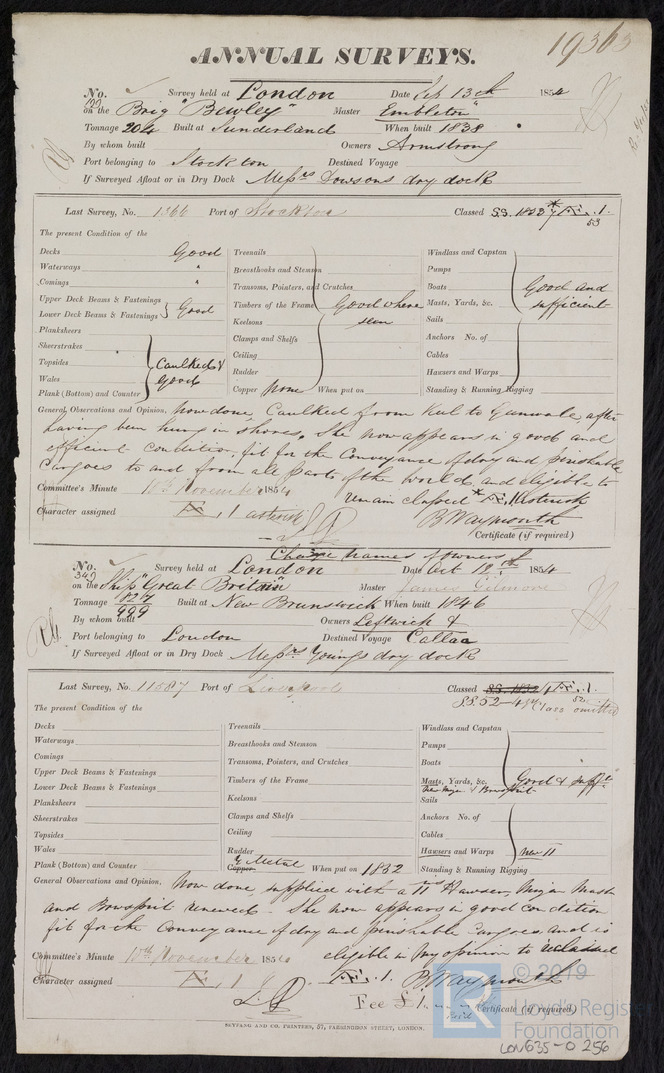 19363
ANNUAL SURVEYS.
No. 199 Survey held at London Date Sep 13th 1854
on the Brig "Bewley" Master Embleton
Tonnage 204 Built at Sunderland When built 1838
By whom built Owners Armstrong
Port belonging to Stockton Destined Voyage
If Surveyed Afloat or in Dry Dock Messrs Dowsons dry dock
Last Survey, No. 1366 Port of Stockton Classed S.S. 1853 * Æ. 1. 53
The present Condition of the
Decks Good
Waterways "
Comings "
Upper Deck Beams & Fastenings
Lower Deck Beams & Fastenings Good
Planksheers
Sheerstrakes
Topsides Caulked &
Wales Good
Plank (Bottom) and Counter
Treenails
Breasthooks and Stemson
Transoms, Pointers, and Crutches
Timbers of the Frame Good where
Keelsons seen
Clamps and Shelfs
Ceiling
Rudder
Copper None When put on
Windlass and Capstan
Pumps
Boats Good and
Masts, Yards, &c. sufficient
Sails
Anchors No. of
Cables
Hawsers and Warps
Standing & Running Rigging
General Observations and Opinion, Now done, Caulked from keel to Gunwale, after
having been hung in shores. She now appears in good and
efficient condition, fit for the Conveyance of dry and perishable
Cargoes to and from all parts of the world, and eligible to
remain classed * Æ. 1.
Committee's Minute 10th November 1854
Character assigned Æ. 1 asterisk
B Waymouth
Certificate (if required)
Change names of owners
No. 340 Survey held at London Date Oct 12th 1854
on the Ship "Great Britain" Master James Gilmore
Tonnage 827 Built at New Brunswick When built 1846
999
By whom built Owners Leftwich &
Port belonging to London Destined Voyage Callao
If Surveyed Afloat or in Dry Dock Messrs Youngs dry dock
Last Survey, No. 11587 Port of Liverpool Classed Æ. 1.
S.S. 52 omitted
The present Condition of the
Decks
Waterways
Comings
Upper Deck Beams & Fastenings
Lower Deck Beams & Fastenings
Planksheers
Sheerstrakes
Topsides
Wales
Plank (Bottom) and Counter
Treenails
Breasthooks and Stemson
Transoms, Pointers, and Crutches
Timbers of the Frame
Keelsons
Clamps and Shelfs
Ceiling
Rudder
Y Metal
Copper When put on 1852
Windlass and Capstan
Pumps
Boats
Masts, Yards, &c. Good & sufft
New Mizen & Bowsprit
Sails
Anchors No. of
Cables
Hawsers and Warps New 11
Standing & Running Rigging
General Observations and Opinion, Now done, supplied with a 11 Hawser, Mizen Mast
and Bowsprit renewed. She now appears in good condition
fit for the Conveyance of dry and perishable Cargoes and is
eligible in my opinion to
Committee's Minute 10th November 1854
Character assigned Æ. 1 Æ. 1. B Waymouth
Fee £1 Certificate (if required)
SEYFANG AND CO. PRINTERS, 57, FARRINGDON STREET, LONDON.
© 2019
Lloyd's Register
Foundation
LON635-0256